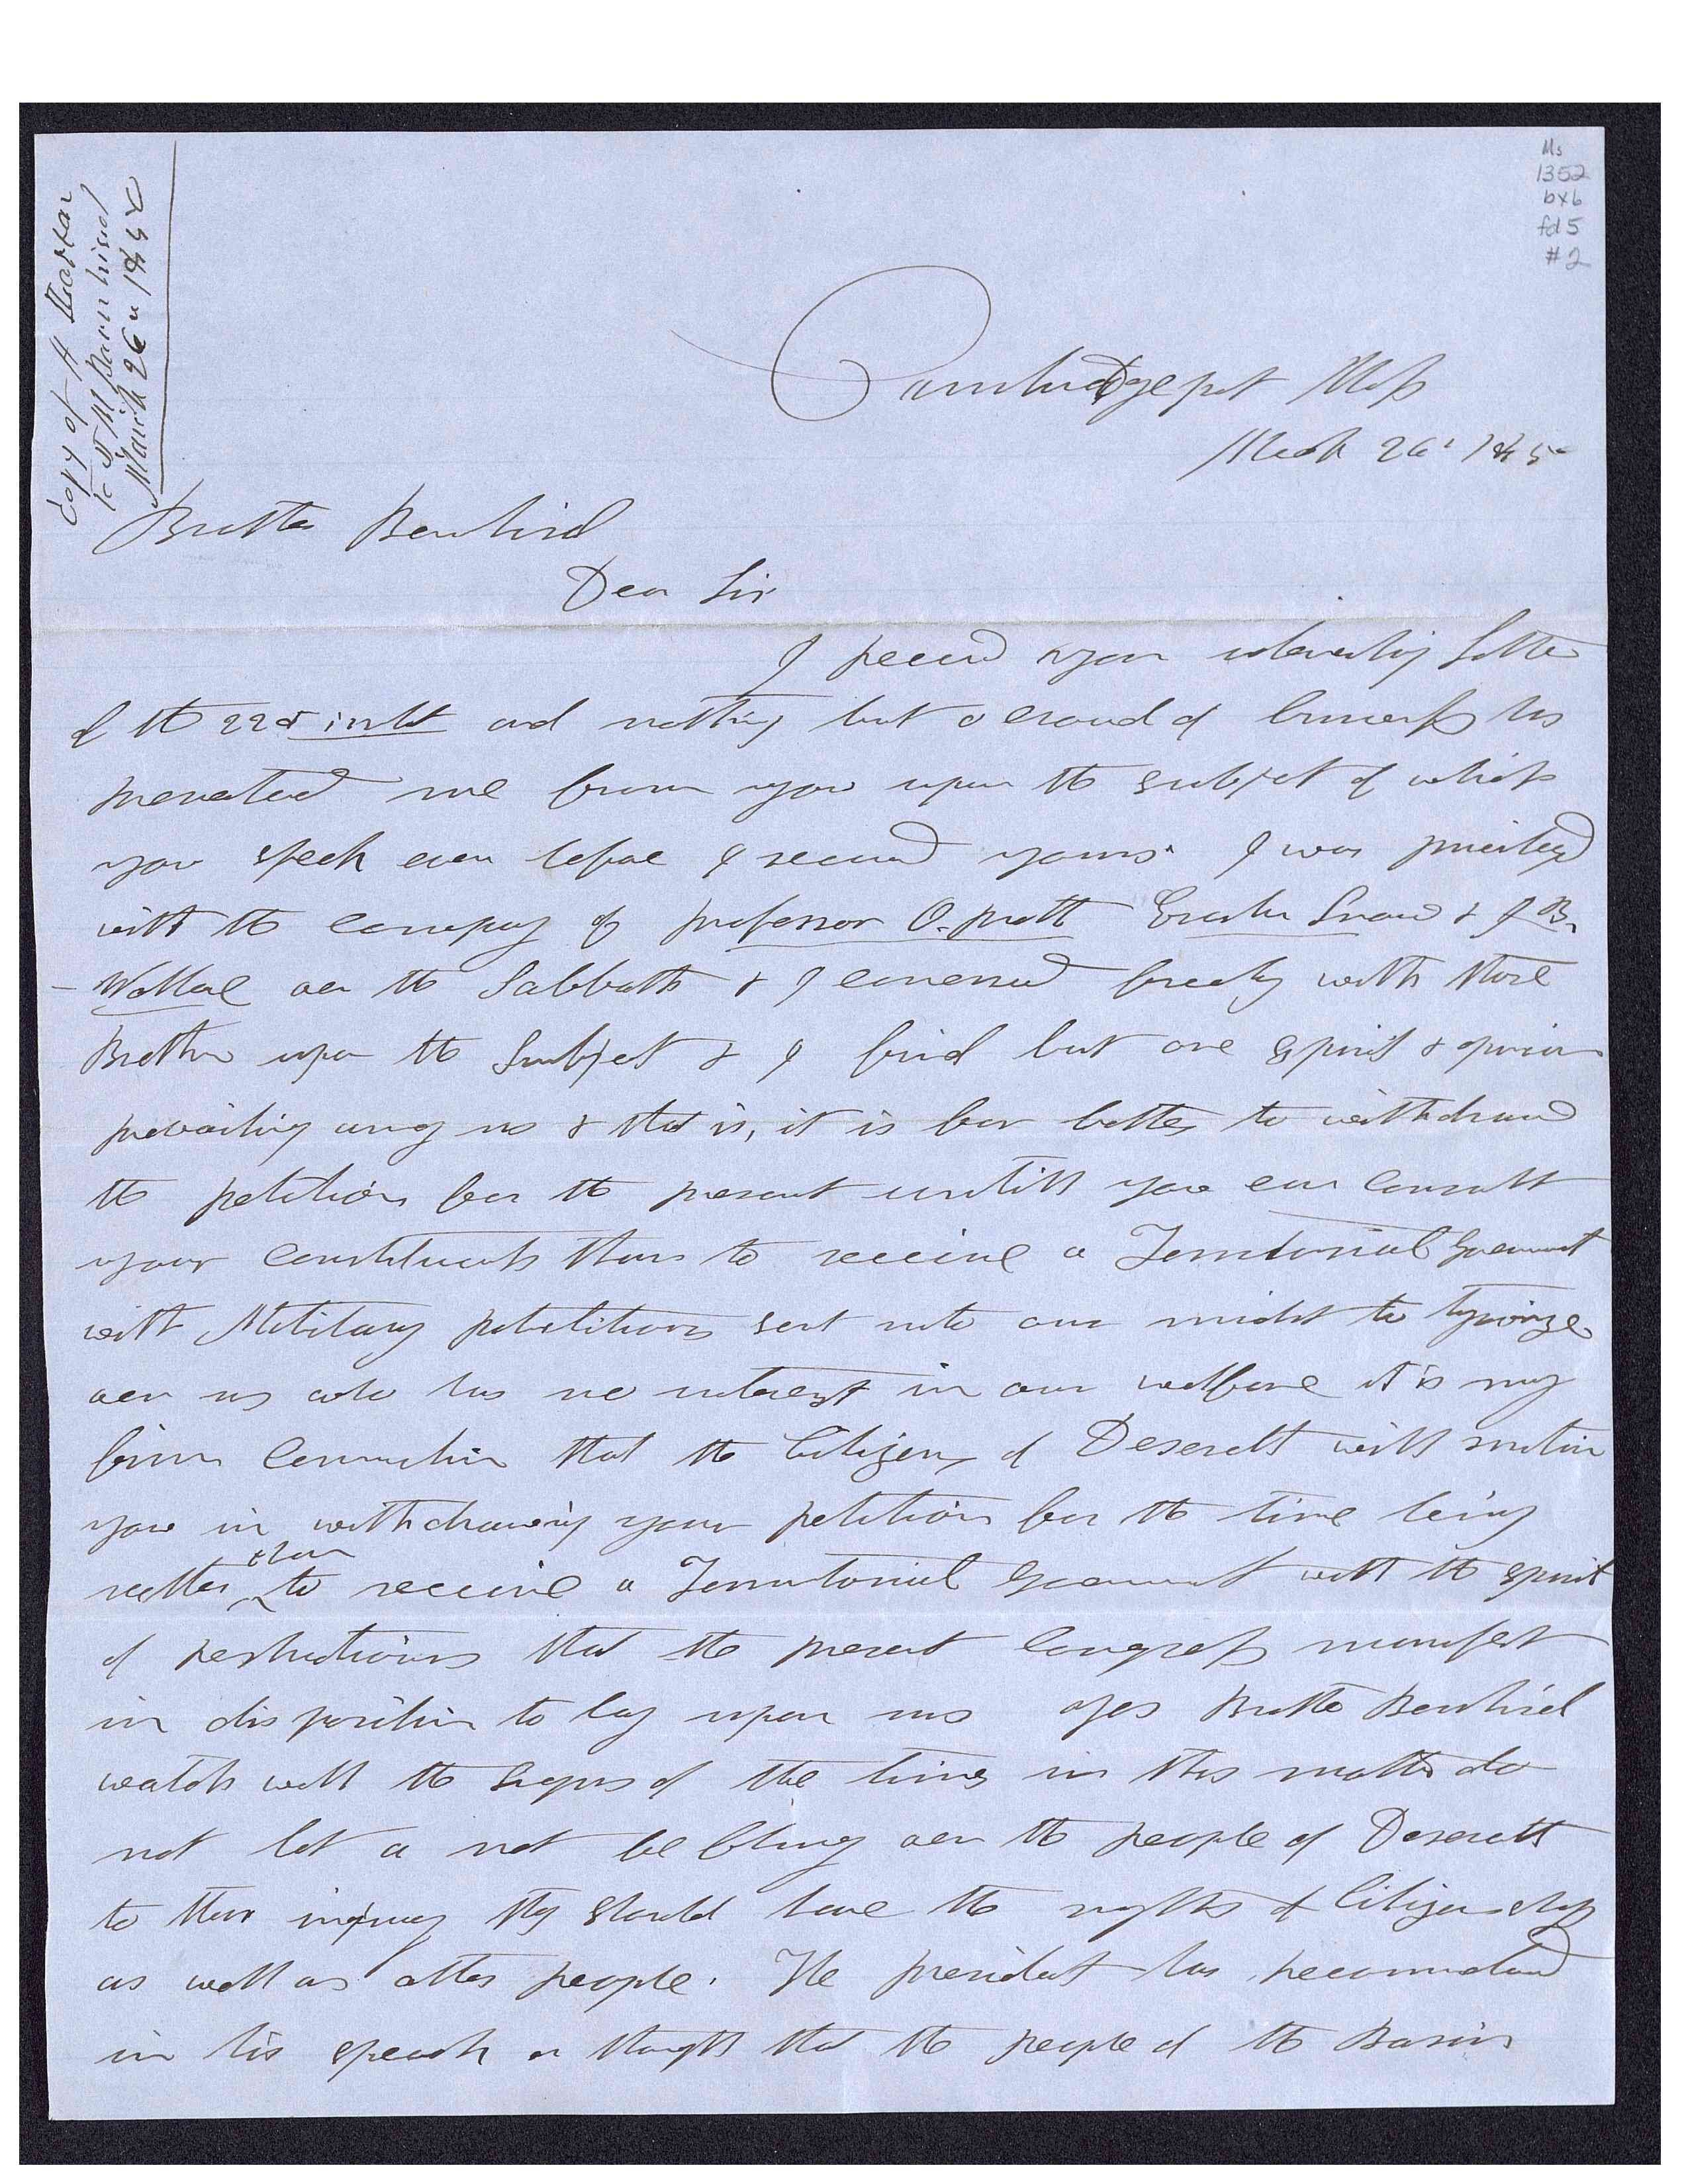 Copy of A Letter
to J M Bernhisel
March 26th 1850
Ms
1352
bx6
fd5
#2
Cambridgeport Mass
March 26th 1850
Brother Bernhisel
Dear Sir
I receivd your interesting letter
of the 22d inst and nothing but a croud of business has
prevented me from you upon the subject of which
you speek even before I received yours. I was privileged
with the company of professor O. pratt Erastus Snow & J B.
Wallace over the Sabbath & I conversed freely with those
Brethren upon the Subject & I find but one spirit & opinion
prevailing among us & that is, it is far better to withdraw
the petition for the present untill you can Consult
your Constituents than to receive a Territorial Goverment
with Military politicians sent into our midst to tyranize
over us who has no interest in our welfare it is my
firm Conviction that the Citizens of Deserett will sustain
you in withdrawing your petition for the time being
rather than to receive a Territorial Goverment with the spirit
of restrictions that the present Congress manifest
in disposition to lay upon us yes Brother Bernhisel
watch well the signs of the times in this matter do
not let a net be flung over the people of Deserett
to their injury they should have the rights of Citizenship
as well as other people. The president has recommended
in his speech or thought that the people of the Basin